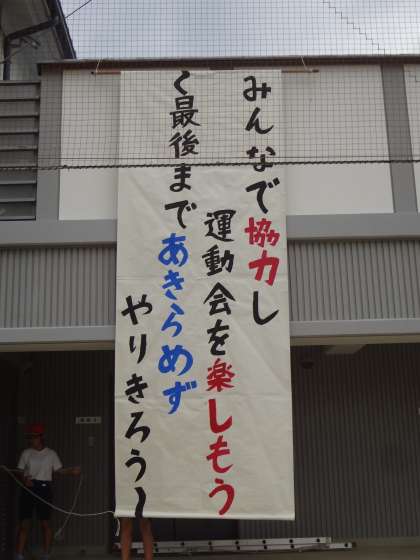 みんなで協力し
運動会を楽しもう
~最後まであきらめず
やりきろう~